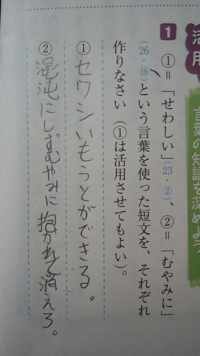 活用
言葉の知識を深めよう
1 ①=「せわしい」(23・②)、②=「むやみに」
(26・⑯)という言葉を使った短文を、それぞれ
作りなさい(①は活用させてもよい)。
①セワシいもうとができる。
②混沌にしずむやみに抱かれて消えろ。